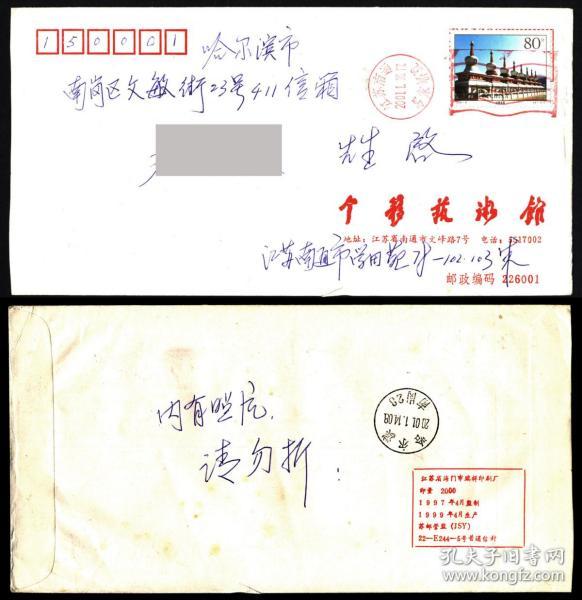 150001
80分
哈尔滨市
南岗区文敏街23号411信箱
先生 启
个移技术馆
地址：江苏省南通市文峰路7号 电话：5517002
江苏南通市学田苑
邮政编码 226001
内有照片
请勿折！
2001.1.14.09
南岗29
江苏省海门市瑞祥印刷厂
印量 2000
1997年4月监制
1999年4月生产
苏邮管监（JSY）
22-E244-5号普通信封
孔夫子旧书网
kongfz.com